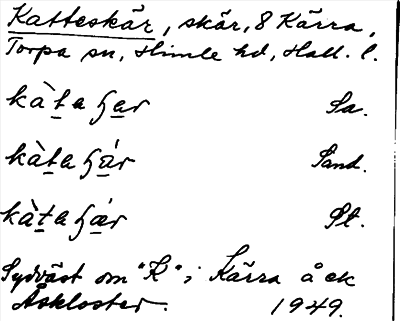 Katteskär, skär, 8 Kärra,
Torpa sn, Himle hd, Hall. l.
kàtaʃꞕer Sa.
kàtaʃꞕár Sand.
kàtaʃꞕár St.
Sydväst om "K" i Kärra å ek
Åskloster. 1949.